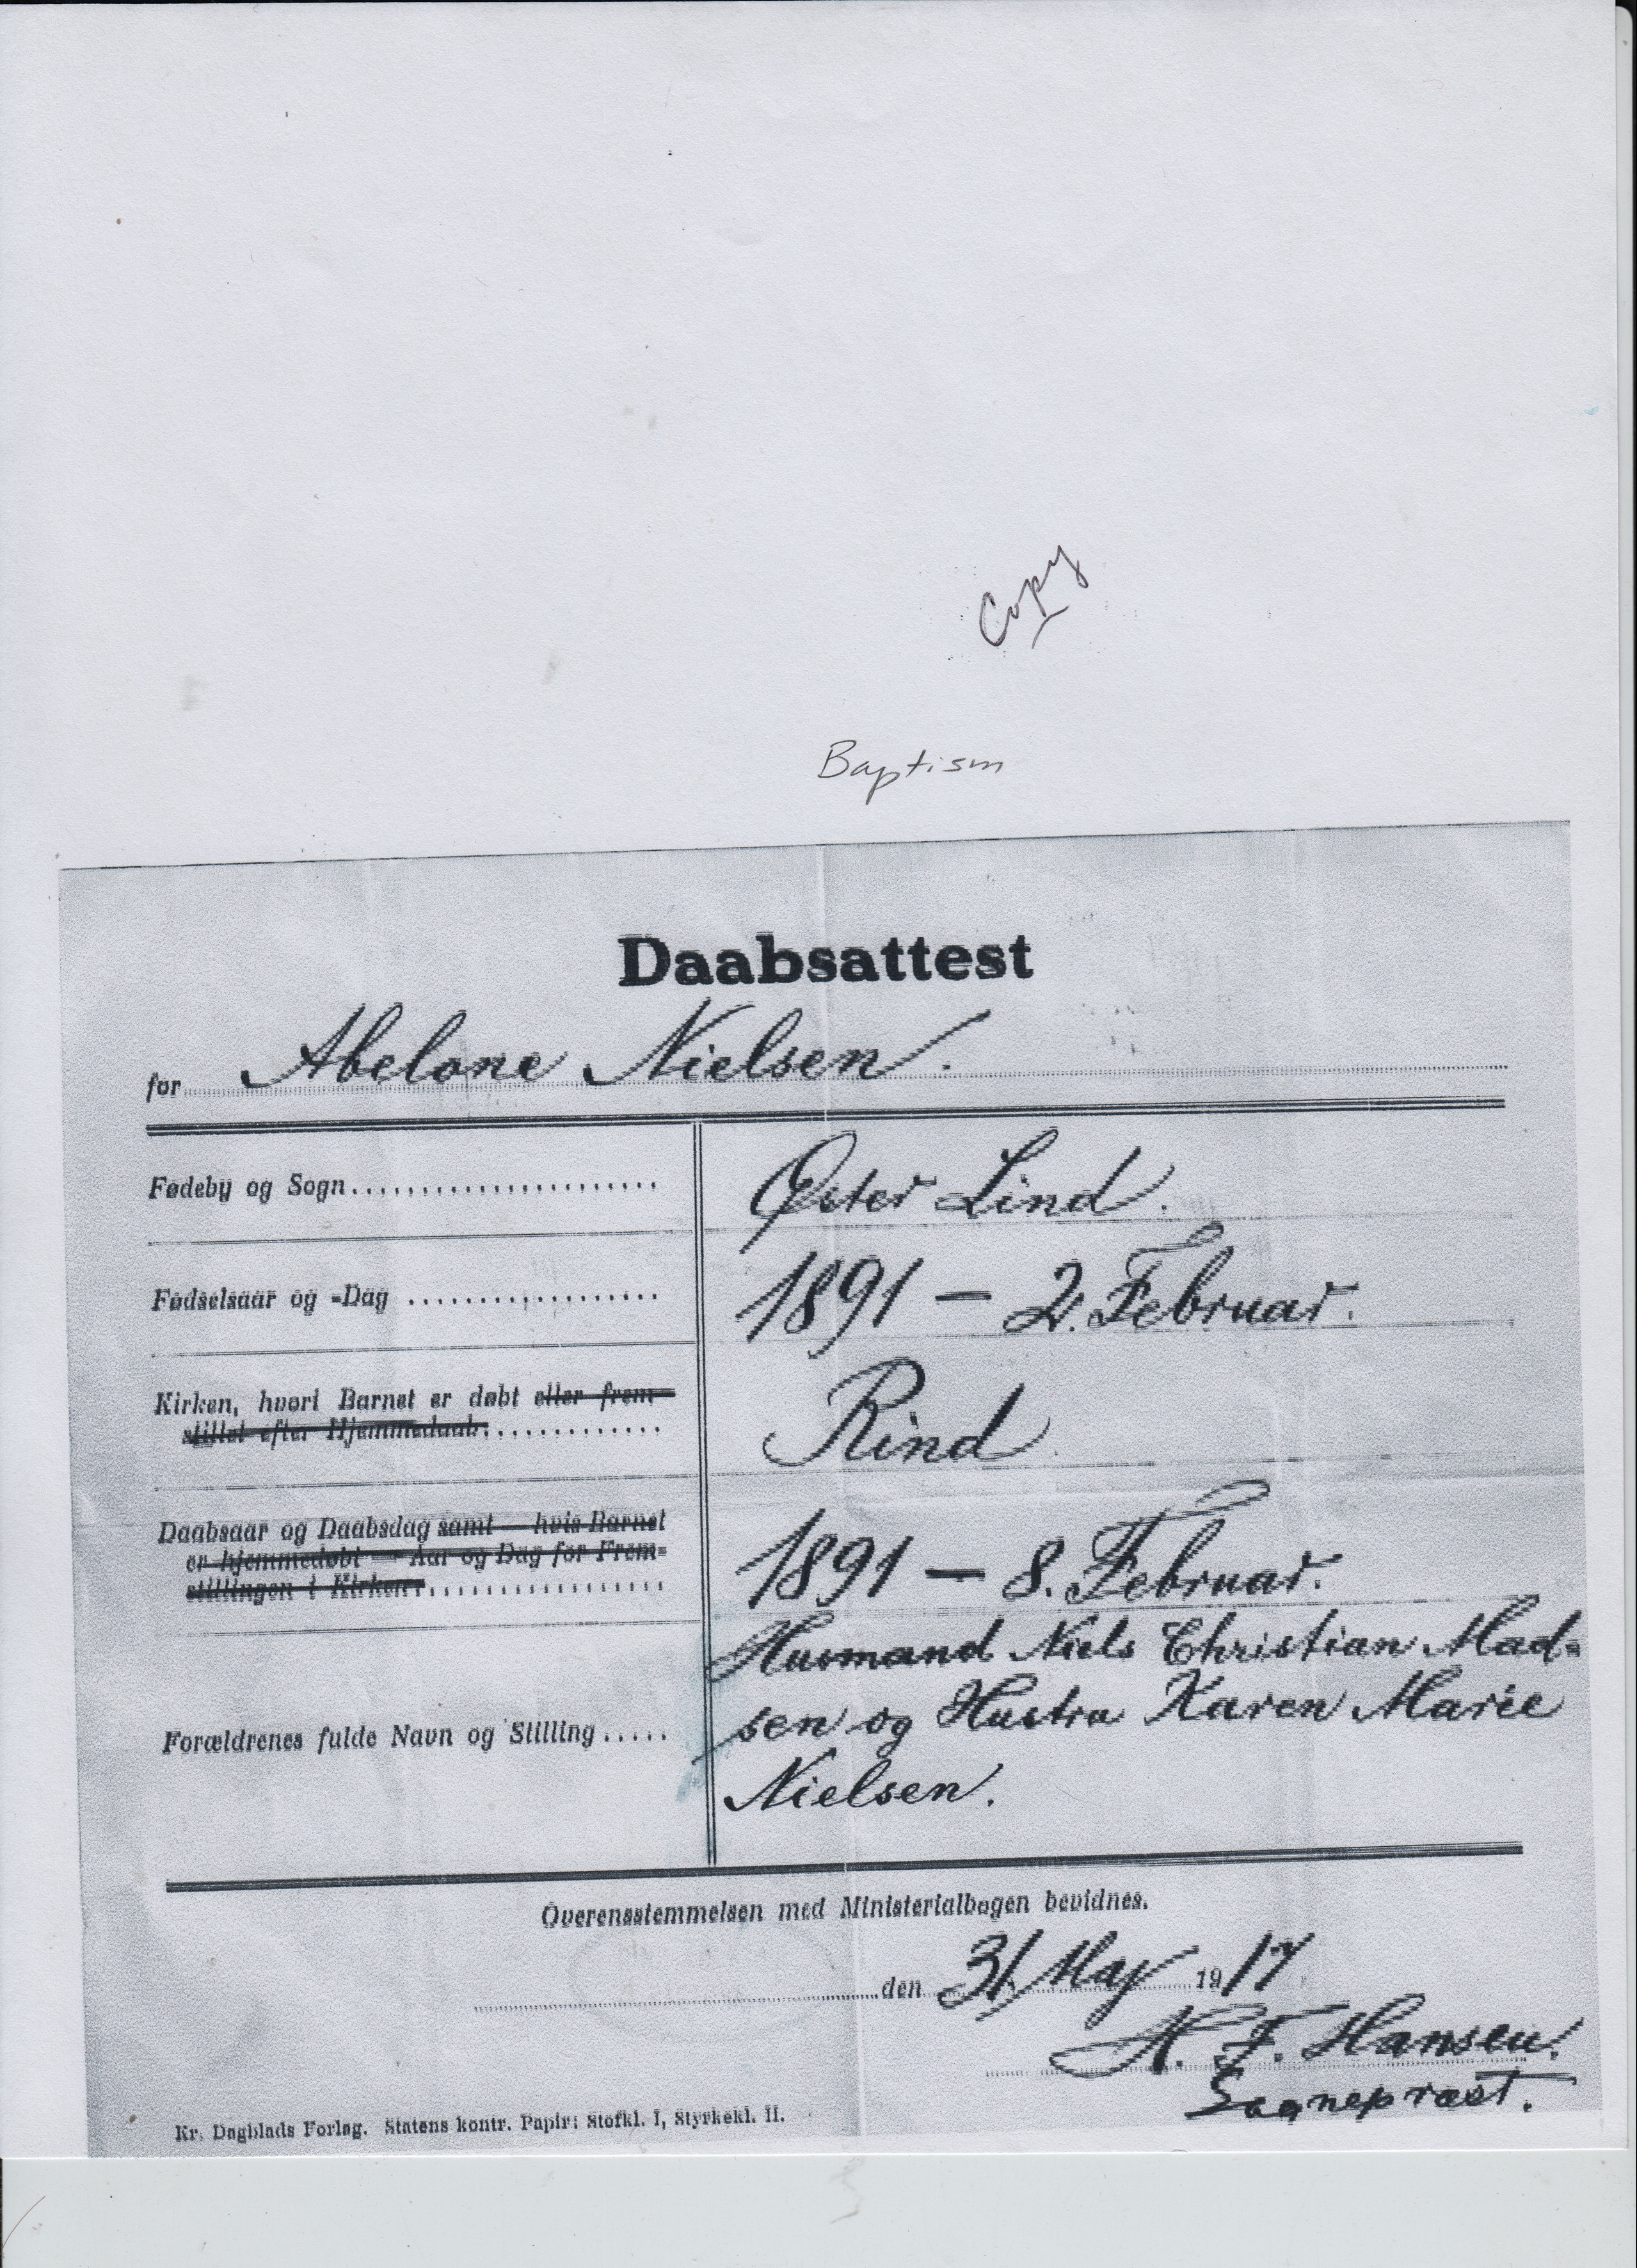 Copy
Baptism
Daabsattest
for Abelone Nielsen.
Fødeby og Sogn....................... Øster Lind.
Fødselsaar og =Dag .................. 1891 – 2. Februar.
Kirken, hvori Barnet er døbt eller frem=
stillet efter Hjemmedaab.............. Rind
Daabsaar og Daabsdag samt — hvis Barnet
er hjemmedøbt — Aar og Dag for Frem=
stillingen i Kirken:.................. 1891 – 8. Februar.
Husmand Niels Christian Mad=
sen og Hustru Karen Marie
Forældrenes fulde Navn og Stilling.....
Nielsen.
Overensstemmelsen med Ministerialbogen bevidnes.
den 31 Maj 1917
H. F. Hansen.
Sognepræst.
Kr. Dagblads Forlag. Statens kontr. Papir: Stofkl. I, Styrkekl. II.